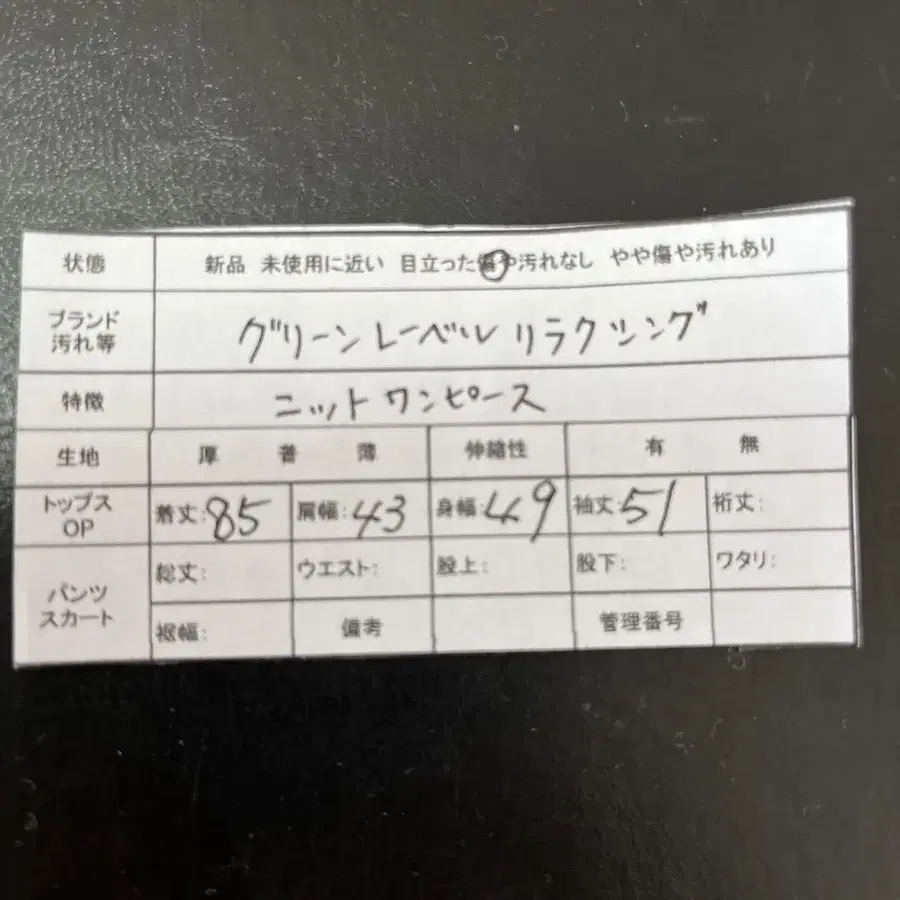 状態 新品 未使用に近い 目立った傷や汚れなし やや傷や汚れあり
ブランド
汚れ等
グリーンレーベルリラクシング
特徴 ニットワンピース
生地 厚 普 薄 伸縮性 有 無
トップス
OP
着丈:85 肩幅:43 身幅:49 袖丈:51 裄丈:
パンツ
スカート
総丈: ウエスト: 股上: 股下: ワタリ:
裾幅: 備考 管理番号